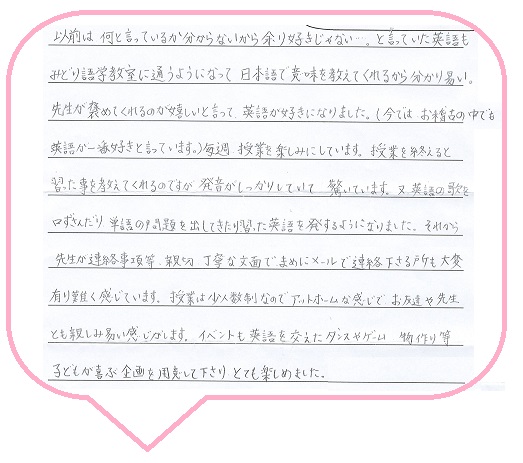 以前は 何と言っているか分からないから余り好きじゃない…。と言っていた英語も
みどり語学教室に通うようになって 日本語で意味を教えてくれるから分かり易い。
先生が褒めてくれるのが嬉しいと言って、英語が好きになりました。(今では、お稽古の中でも
英語が一番好きと言っています。)毎週、授業を楽しみにしています。授業を終えると
習った事を教えてくれるのですが 発音がしっかりしていて 驚いています。又、英語の歌を
口ずさんだり、単語の問題を出してきたり習った英語を発するようになりました。それから
先生が連絡事項等、親切、丁寧な文面で、まめにメールで連絡下さる所も大変
有り難く感じています。授業は少人数制なのでアットホームな感じで、お友達や先生
とも親しみ易い感じがします。イベントも英語を交えたダンスやゲーム 物作り等
子どもが喜ぶ企画を用意して下さり、とても楽しめました。